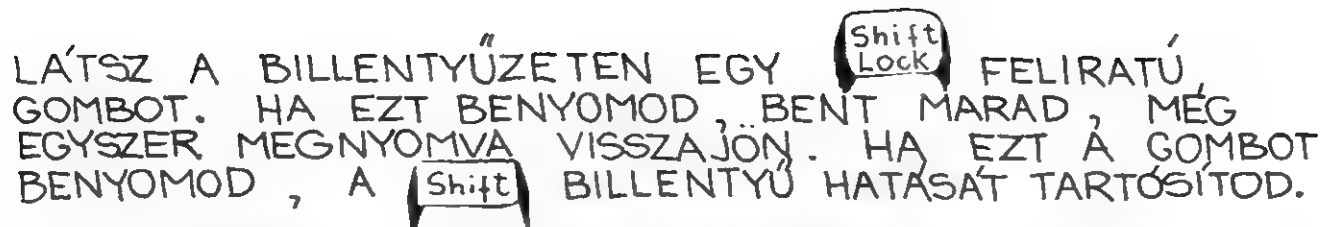 LÁTSZ A BILLENTYŰZETEN EGY Shift Lock FELIRATÚ
GOMBOT. HA EZT BENYOMOD, BENT MARAD, MÉG
EGYSZER MEGNYOMVA VISSZAJÖN. HA EZT A GOMBOT
BENYOMOD, A Shift BILLENTYŰ HATÁSÁT TARTÓSÍTOD.